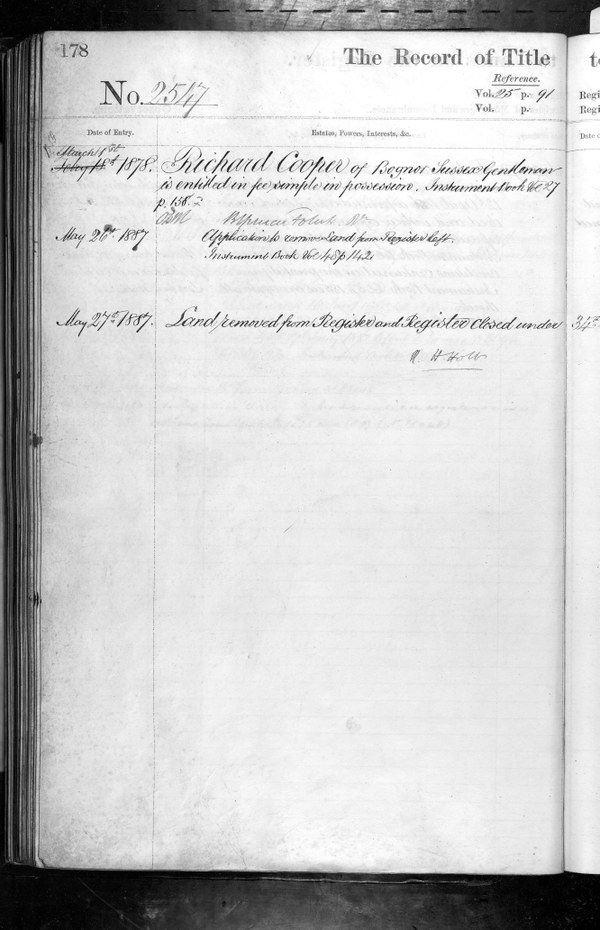 178
The Record of Title
Reference.
No. 2547
Vol. 25 p. 91
Vol. p.
Date of Entry.
Estates, Powers, Interests, &c.
March 1st
1878. Richard Cooper of Bognor Sussex Gentleman
is entitled in fee simple in possession. Instrument Book Vol 27
p. 158.
May 26th 1887
Application to remove Land from Register left.
Instrument Book Vol 48 p 142
May 27th 1887. Land removed from Register and Register closed under
R H Holt
to
Regi
Regi
Date o
34